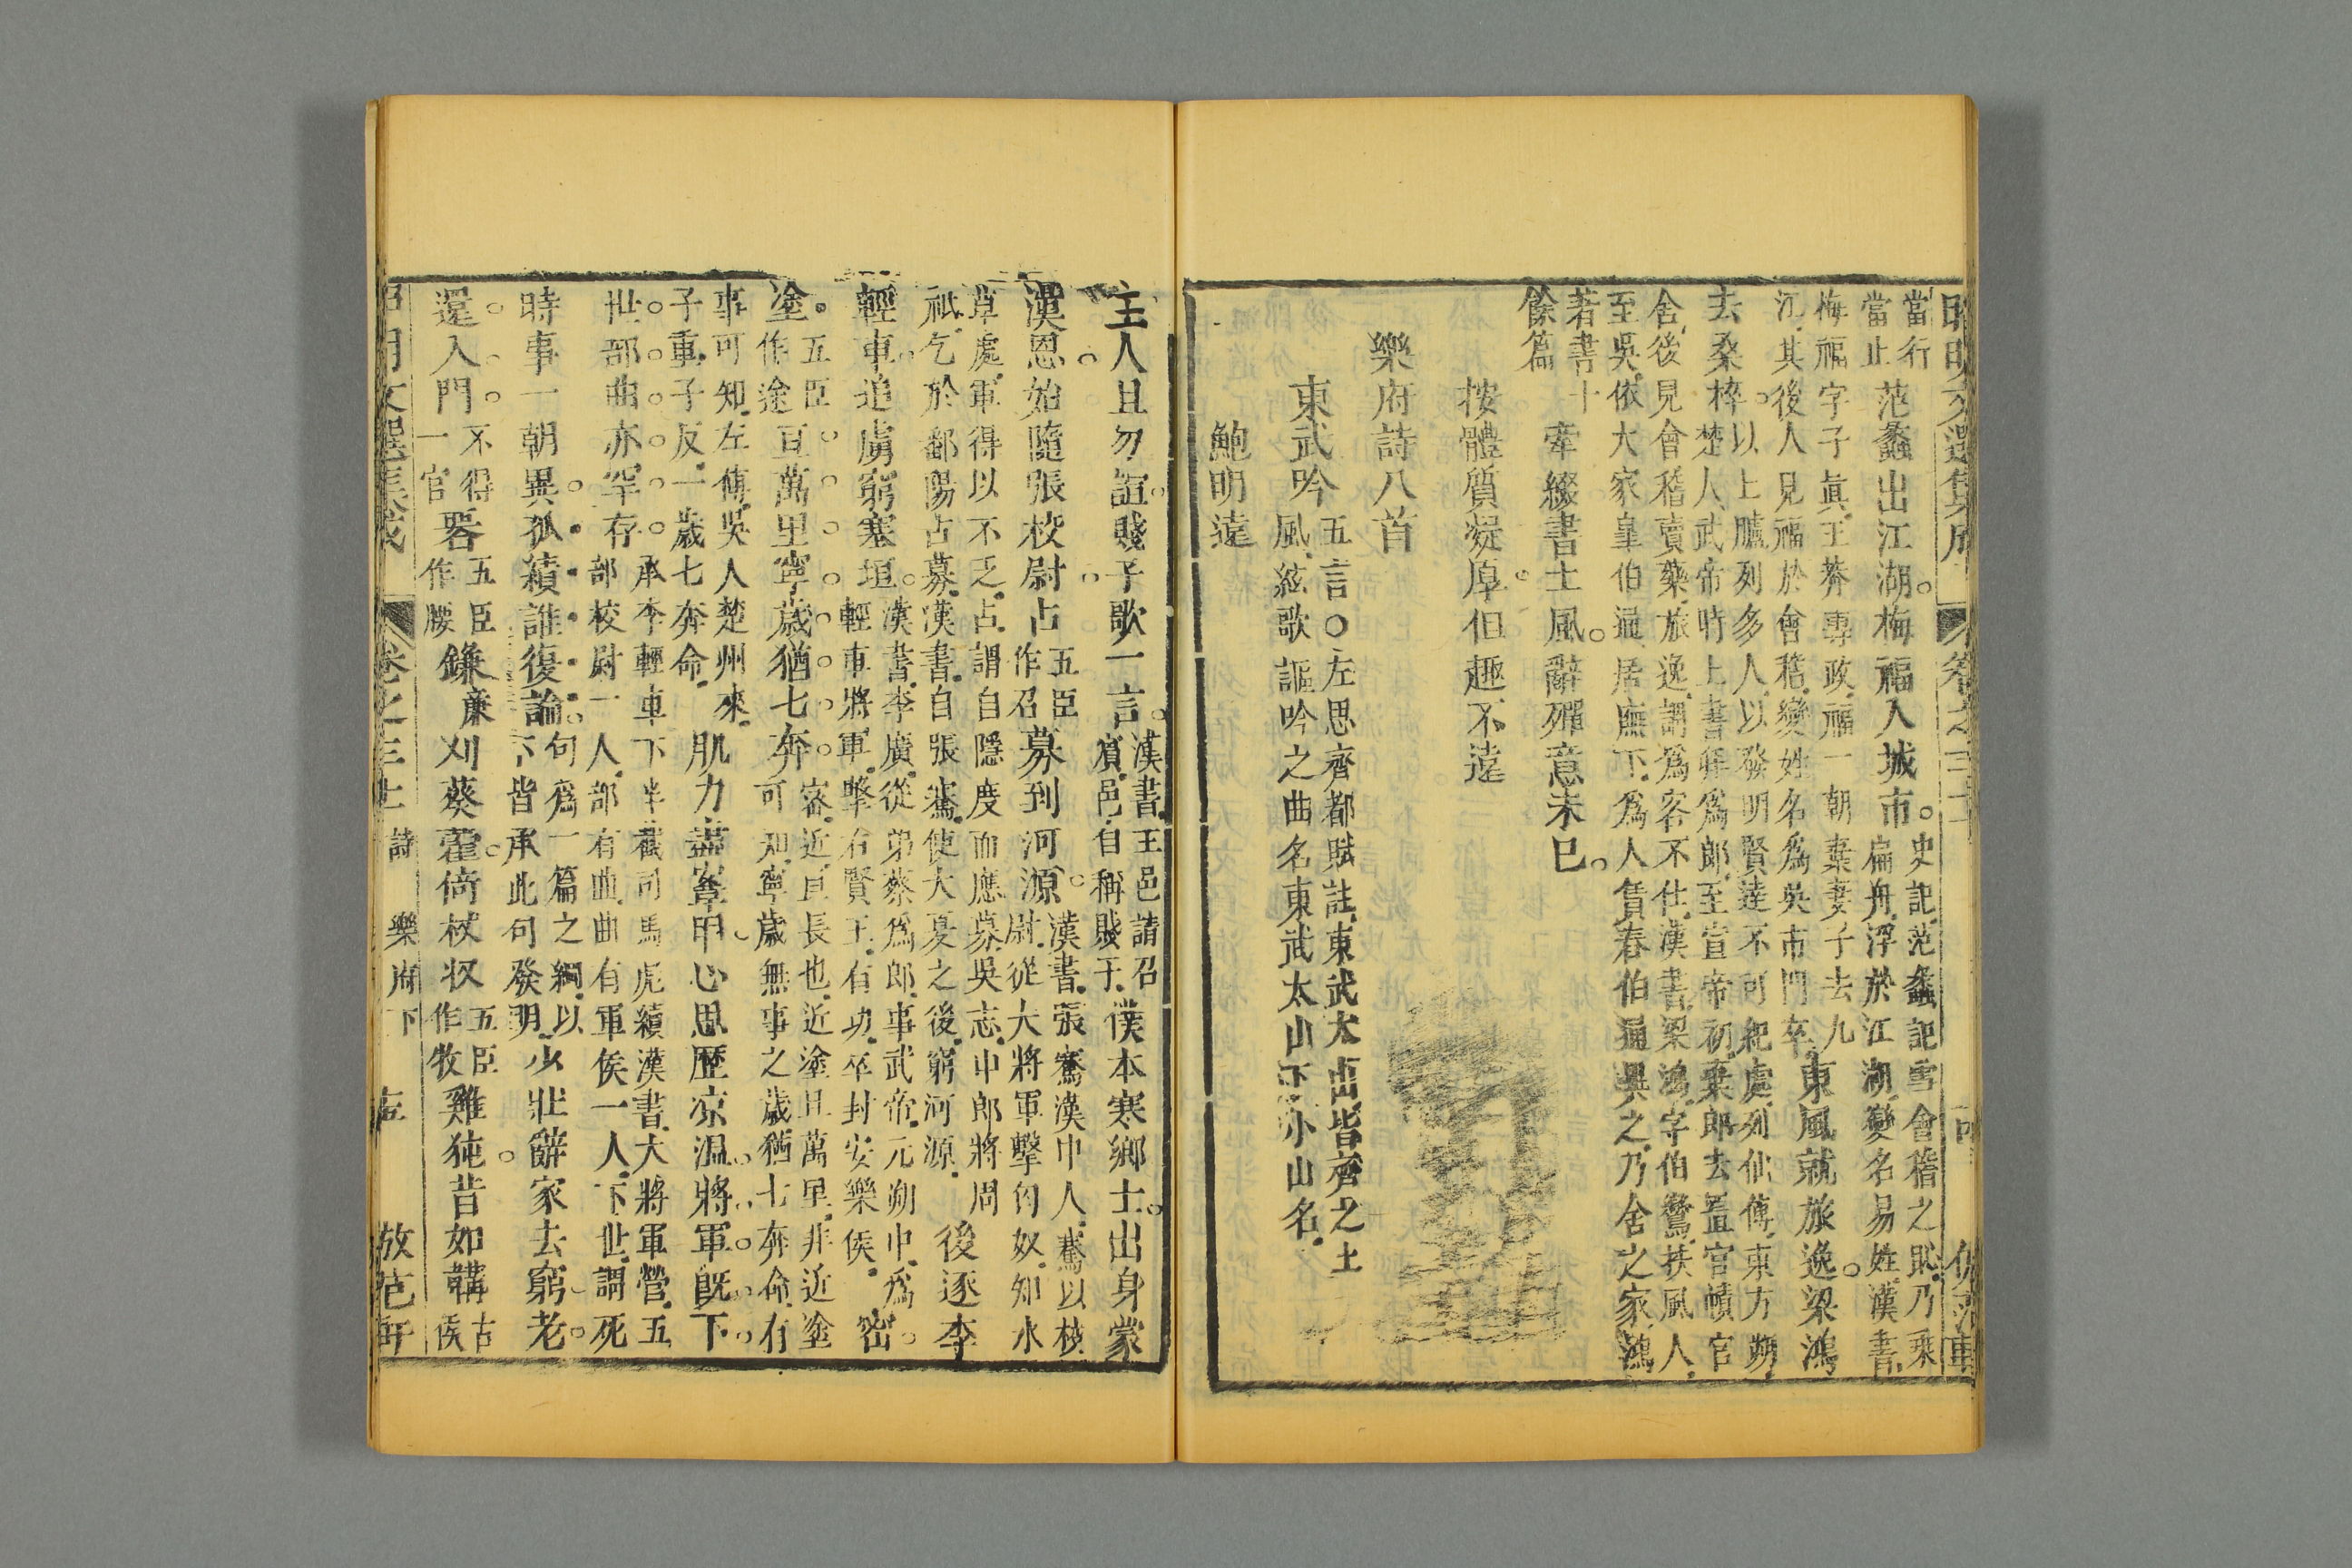 當行當止范蠡出江湖梅福入城市史記范蠡記雪會稽之恥乃乘扁舟浮於江湖變名易姓漢書
梅福字子眞王莽專政福一朝棄妻子去九江其後人見福於會稽變姓名爲吳市門卒東風就旅逸梁鴻
去桑梓以上臚列多人以發明賢達不可紀處列仙傳東方朔楚人武帝時上書拜爲郎至宣帝初棄郎去置官幘官
舍後見會稽賣藥旅逸謂爲客不仕漢書梁鴻字伯鸞扶風人至吳依大家皐伯通居廡下爲人賃舂伯通異之乃舍之家鴻
著書十餘篇牽綴書土風辭殫意未已
按體質凝厚但趣不遠
樂府詩八首
東武吟五言○左思齊都賦註東武太山皆齊之土風絃歌謳吟之曲名東武太山下小山名
鮑明遠
主人且勿諠賤子歌一言漢書王邑請召賔邑自稱賤子僕本寒鄉士出身蒙
漢恩始隨張校尉占五臣作召募到河源漢書張騫漢中人騫以校尉從大將軍擊匈奴知水
草處軍得以不乏占謂自隱度而應募吳志中郎將周祇乞於鄱陽占募漢書自張騫使大夏之後窮河源後逐李
輕車追虜窮塞垣漢書李廣從弟蔡爲郎事武帝元朔中爲輕車將軍擊右賢王有功卒封安樂侯密
塗五臣作途亘萬里寧歲猶七奔密近亘長也近塗且萬里非近塗可知寧歲無事之歲猶七奔命有
事可知左傳吳人楚州來子重子反一歲七奔命肌力盡鞌甲心思歷凉温將軍旣下
世部曲亦罕存承李輕車下半截司馬虎續漢書大將軍營五部校尉一人部有曲曲有軍侯一人下世謂死
時事一朝異孤績誰復論句爲一篇之綱以下皆承此句發明少壯辭家去窮老
還入門不得一官㗉五臣作腰鎌亷刈葵藿倚杖收五臣作牧雞㹠昔如韝古侯
昭明文選集成 卷之三十 詩 樂府下 放